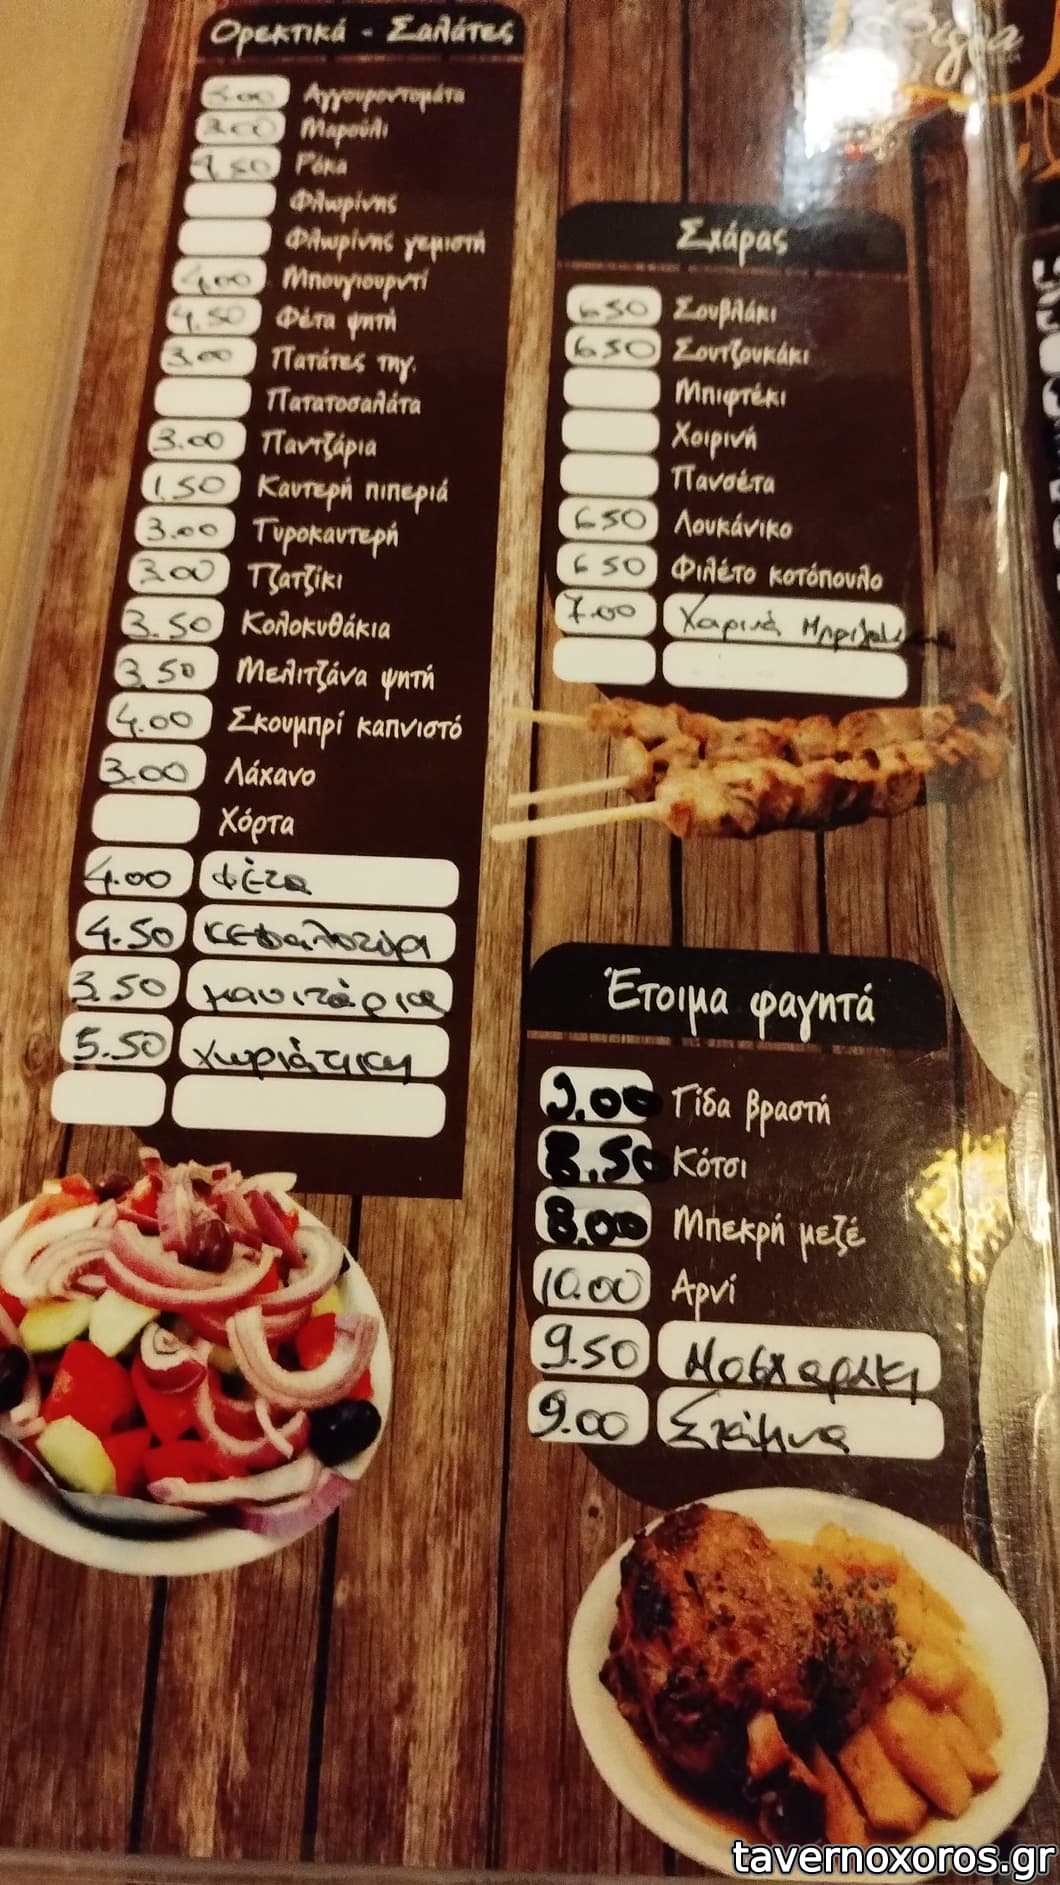 Ορεκτικά - Σαλάτες
3.00 Αγγουροντομάτα
3.00 Μαρούλι
4,50 Ρόκα
Φλωρίνης
Φλωρίνης γεμιστή
4,00 Μπουγιουρντί
4.50 Φέτα ψητή
3.00 Πατάτες τηγ.
Πατατοσαλάτα
3.00 Παντζάρια
1.50 Καυτερή πιπεριά
3.00 Τυροκαυτερή
3.00 Τζατζίκι
3.50 Κολοκυθάκια
3.50 Μελιτζάνα ψητή
4.00 Σκουμπρί καπνιστό
3.00 Λάχανο
Χόρτα
4.00 φέτα
4.50 κεφαλοτύρι
3.50 μανιτάρια
5.50 χωριάτικη
Σχάρας
6.50 Σουβλάκι
6.50 Σουτζουκάκι
Μπιφτέκι
Χοιρινή
Πανσέτα
6.50 Λουκάνικο
6.50 Φιλέτο κοτόπουλο
7.00
Έτοιμα φαγητά
9.00 Γίδα βραστή
8.50 Κότσι
8.00 Μπεκρή μεζέ
10.00 Αρνί
9.50 Μοσχαρακι
9.00
tavernoxoros.gr